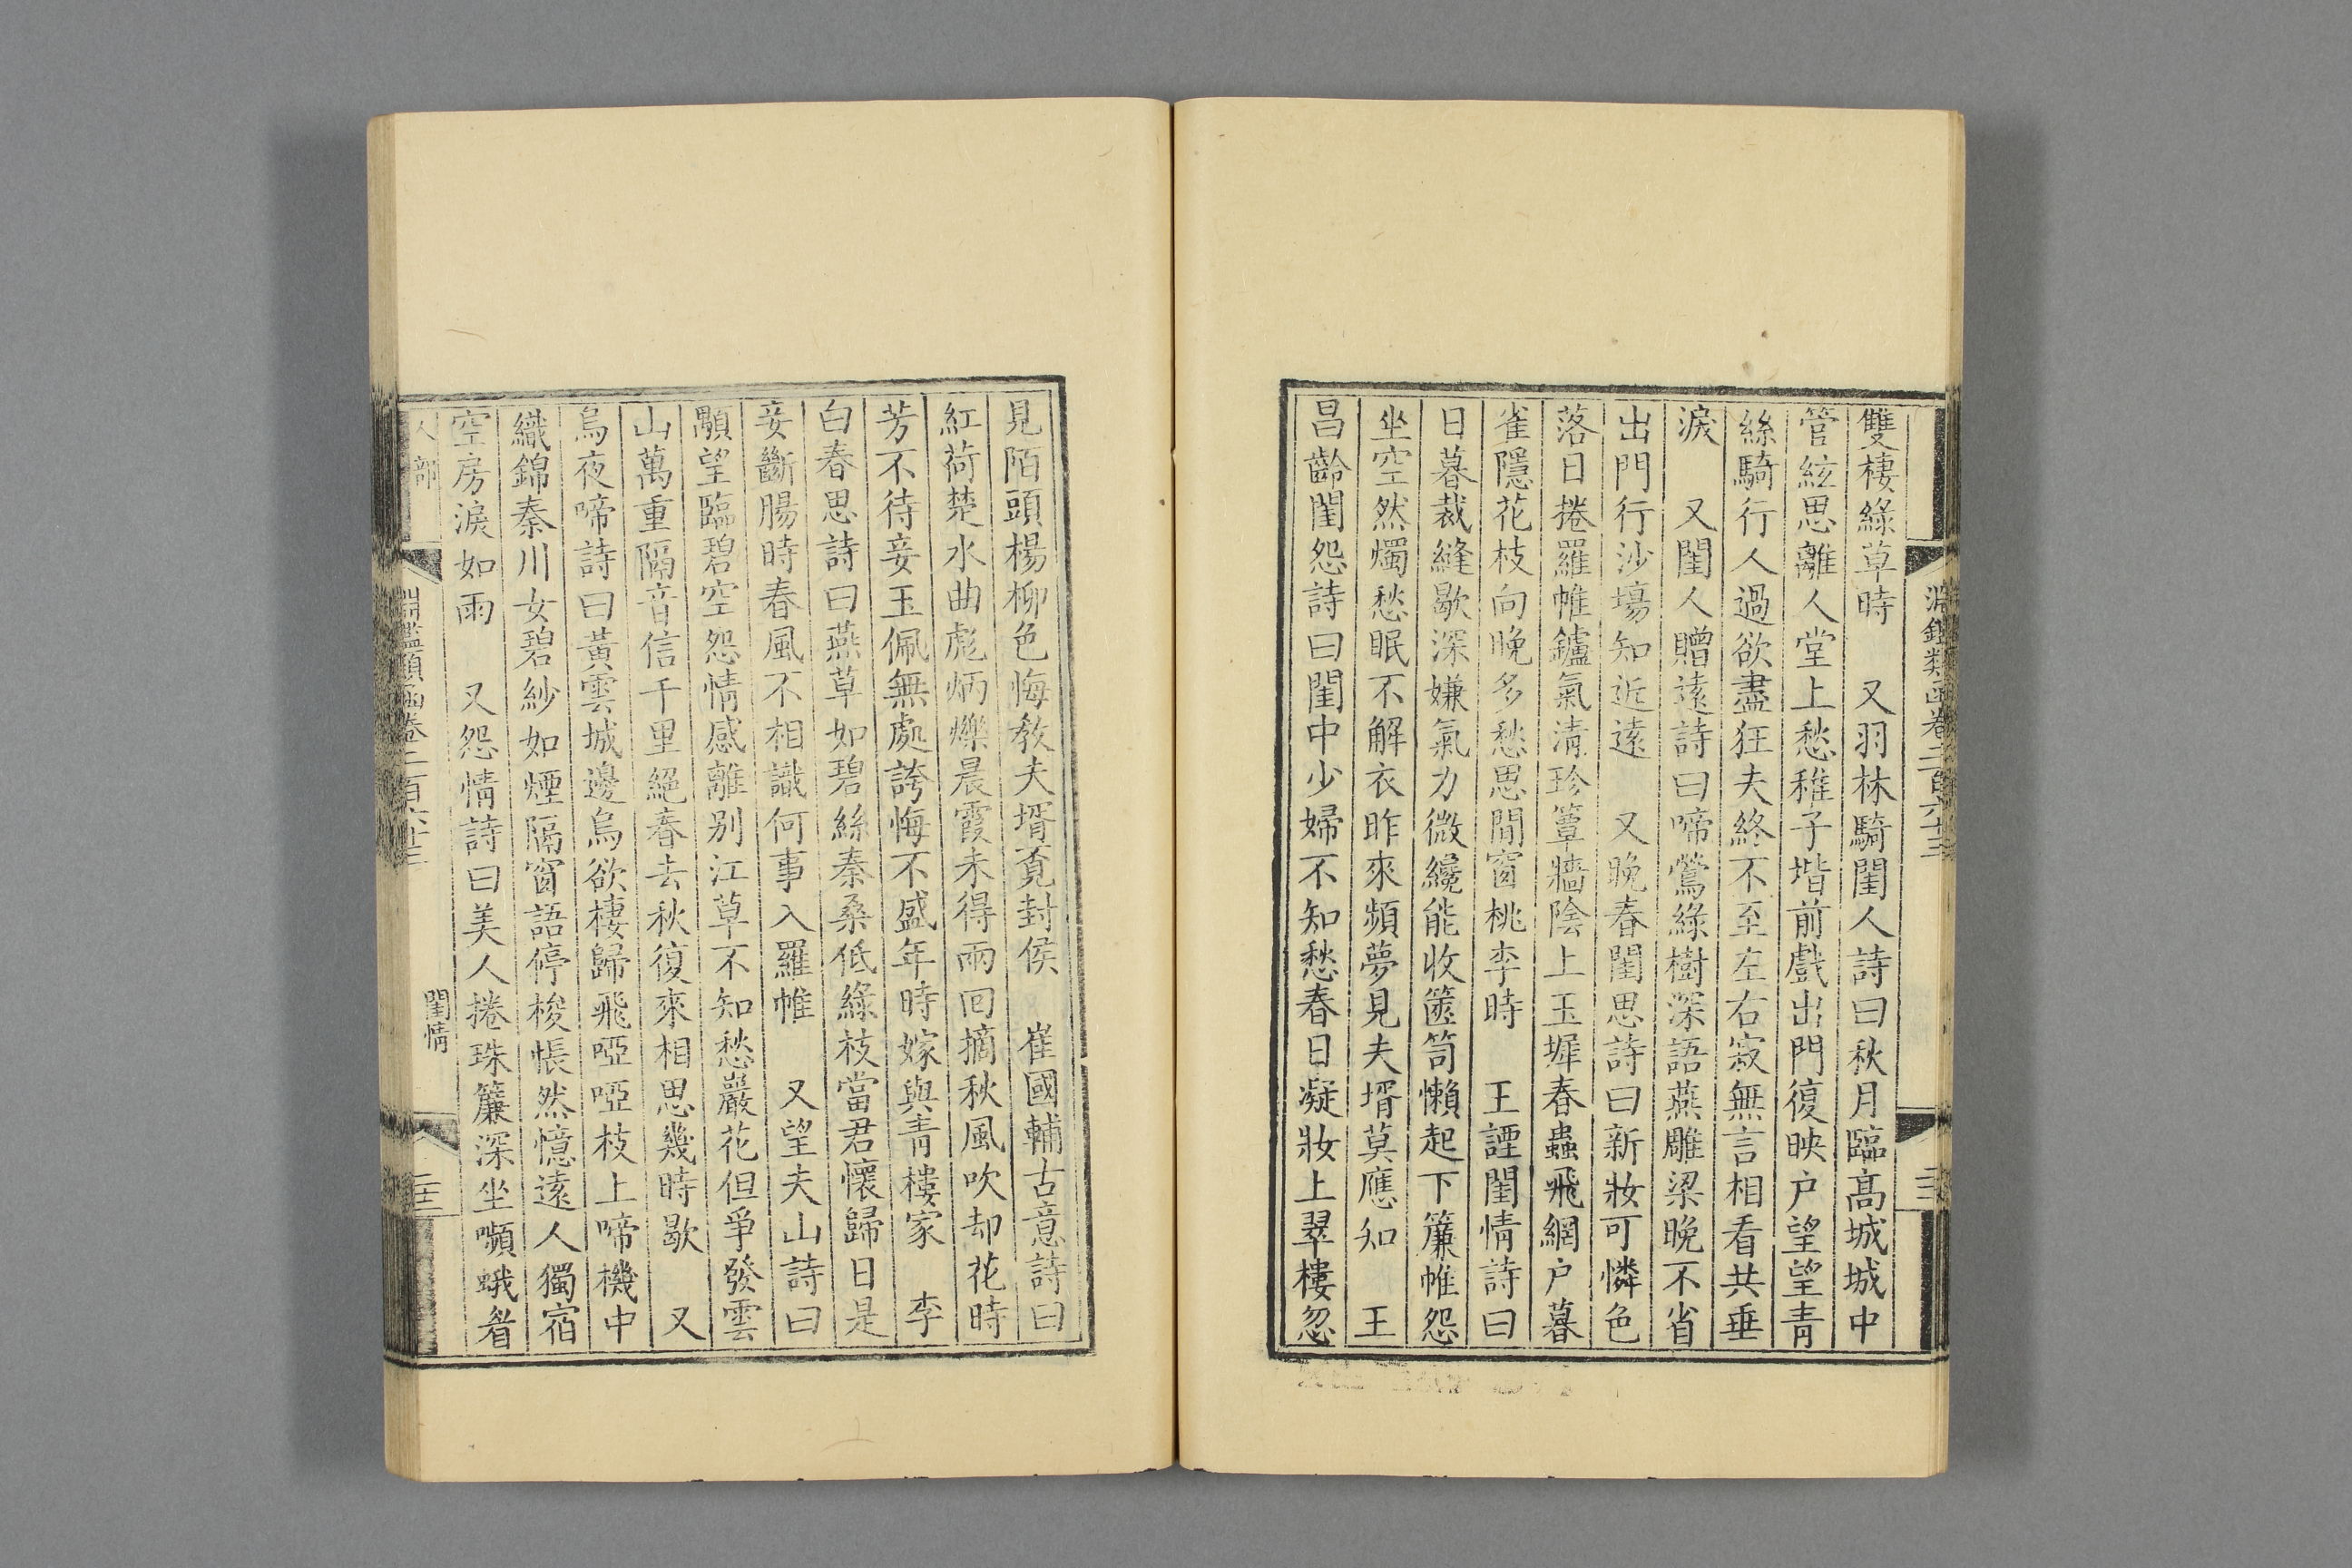 淵鑑類函卷二百六十三
雙棲綠草時　又羽林騎閨人詩曰秋月臨高城城中
管絃思離人堂上愁稚子堦前戲出門復映户望望青
絲騎行人過欲盡狂夫終不至左右寂無言相看共垂
淚　又閨人贈遠詩曰啼鶯綠樹深語燕雕梁晚不省
出門行沙場知近遠　又晚春閨思詩曰新妝可憐色
落日捲羅帷鑪氣清珍簟牆陰上玉墀春蟲飛網户暮
雀隱花枝向晚多愁思閒窗桃李時　王諲閨情詩曰
日暮裁縫歇深嫌氣力微纔能收篋笥懶起下簾帷怨
坐空然燭愁眠不解衣昨來頻夢見夫壻莫應知　王
昌齡閨怨詩曰閨中少婦不知愁春日凝妝上翠樓忽
見陌頭楊柳色悔教夫壻覓封侯　崔國輔古意詩曰
紅荷楚水曲彪炳爍晨霞未得兩回摘秋風吹却花時
芳不待妾玉佩無處誇悔不盛年時嫁與青樓家　李
白春思詩曰燕草如碧絲秦桑低綠枝當君懷歸日是
妾斷腸時春風不相識何事入羅帷　又望夫山詩曰
顒望臨碧空怨情感離别江草不知愁巖花但爭發雲
山萬重隔音信千里絕春去秋復來相思幾時歇　又
烏夜啼詩曰黃雲城邊烏欲棲歸飛啞啞枝上啼機中
織錦秦川女碧紗如煙隔窗語停梭悵然憶遠人獨宿
空房淚如雨　又怨情詩曰美人捲珠簾深坐嚬蛾眉
人部　淵鑑類函卷二百六十三　閨情